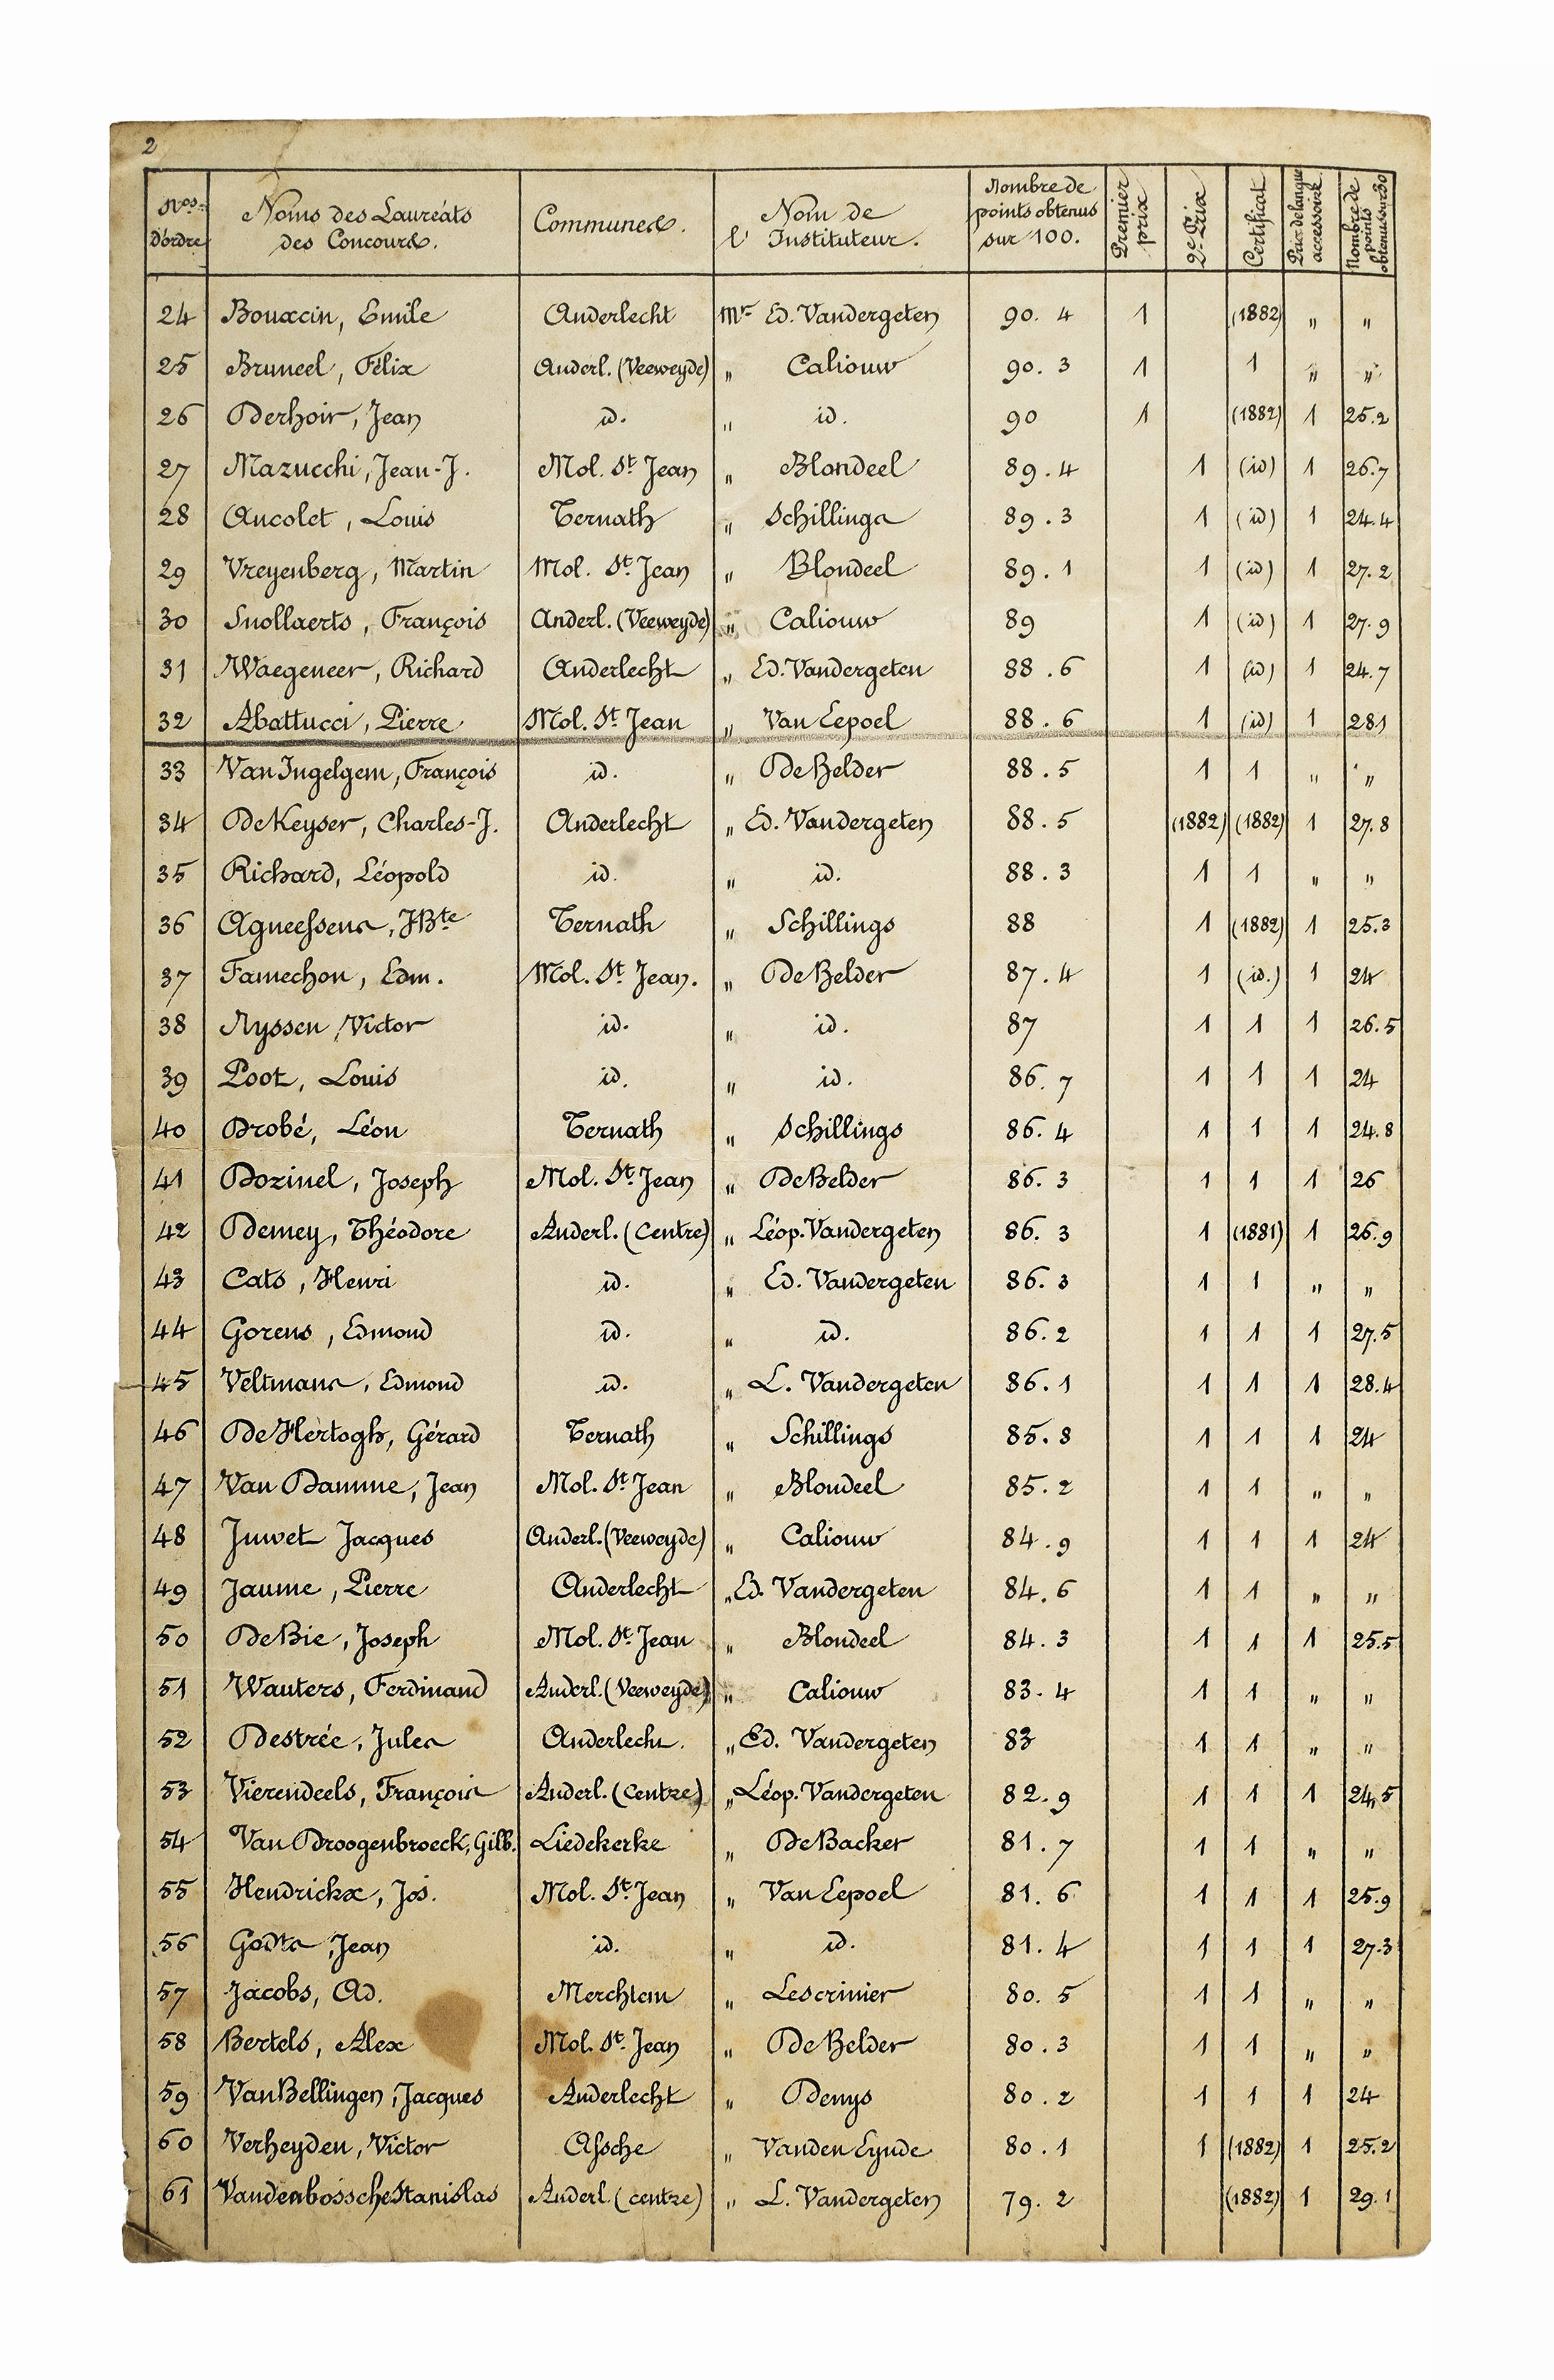 2
Nos d'ordre Noms des Lauréats des Concours. Communes. Nom de l'Instituteur. Nombre de points obtenus sur 100. Premier prix 2e Prix Certificat Prix de langue accessoire Nombre de points obtenus sur 30
24 Bouxcin, Emile Anderlecht Mr Ed. Vandergeten 90.4 1 (1882) " "
25 Bruneel, Félix Anderl. (Veeweyde) " Caliouw 90.3 1 1 " "
26 Derhoir, Jean id. " id. 90 1 (1882) 1 25.2
27 Mazucchi, Jean-J. Mol. St Jean " Blondeel 89.4 1 (id) 1 26.7
28 Ancolet, Louis Ternath " Schillings 89.3 1 (id) 1 24.4
29 Vreyenberg, Martin Mol. St Jean " Blondeel 89.1 1 (id) 1 27.2
30 Snollaerts, François Anderl. (Veeweyde) " Caliouw 89 1 (id) 1 27.9
31 Waegeneer, Richard Anderlecht " Ed. Vandergeten 88.6 1 (id) 1 24.7
32 Abattucci, Pierre Mol. St Jean " Van Eepoel 88.6 1 (id) 1 281
33 Van Ingelgem, François id. " De Belder 88.5 1 1 " "
34 De Keyser, Charles-J. Anderlecht " Ed. Vandergeten 88.5 (1882) (1882) 1 27.8
35 Richard, Léopold id. " id. 88.3 1 1 " "
36 Agneessens, J Bte Ternath " Schillings 88 1 (1882) 1 25.3
37 Famechon, Edm. Mol. St Jean. " De Belder 87.4 1 (id.) 1 24
38 Nyssen, Victor id. " id. 87 1 1 1 26.5
39 Poot, Louis id. " id. 86.7 1 1 1 24
40 Drobé, Léon Ternath " Schillings 86.4 1 1 1 24.8
41 Dozinel, Joseph Mol. St Jean " De Belder 86.3 1 1 1 26
42 Demey, Théodore Anderl. (Centre) " Léop. Vandergeten 86.3 1 (1881) 1 26.9
43 Cats, Henri id. " Ed. Vandergeten 86.3 1 1 " "
44 Gorens, Edmond id. " id. 86.2 1 1 1 27.5
45 Veltmans, Edmond id. " L. Vandergeten 86.1 1 1 1 28.4
46 De Hertogh, Gérard Ternath " Schillings 85.8 1 1 1 24
47 Van Damme, Jean Mol. St Jean " Blondeel 85.2 1 1 " "
48 Juwet Jacques Anderl. (Veeweyde) " Caliouw 84.9 1 1 1 24
49 Jaume, Pierre Anderlecht " Ed. Vandergeten 84.6 1 1 " "
50 De Bie, Joseph Mol. St Jean " Blondeel 84.3 1 1 1 25.5
51 Wauters, Ferdinand Anderl. (Veeweyde) " Caliouw 83.4 1 1 " "
52 Destrée, Jules Anderlecht. " Ed. Vandergeten 83 1 1 " "
53 Vierendeels, François Anderl. (Centre) " Léop. Vandergeten 82.9 1 1 1 24,5
54 Van Droogenbroeck, Gilb. Liedekerke " De Backer 81.7 1 1 " "
55 Hendrickx, Jos. Mol. St Jean " Van Eepoel 81.6 1 1 1 25.9
56 Godts, Jean id. " id. 81.4 1 1 1 27.3
57 Jacobs, Ad. Merchtem " Lescrinier 80.5 1 1 " "
58 Bertels, Alex Mol. St. Jean " De Belder 80.3 1 1 " "
59 Van Bellingen, Jacques Anderlecht " Denys 80.2 1 1 1 24
60 Verheyden, Victor Assche " Vanden Eynde 80.1 1 (1882) 1 25.2
61 Vandenbossche Stanislas Anderl. (centre) " L. Vandergeten 79.2 (1882) 1 29.1